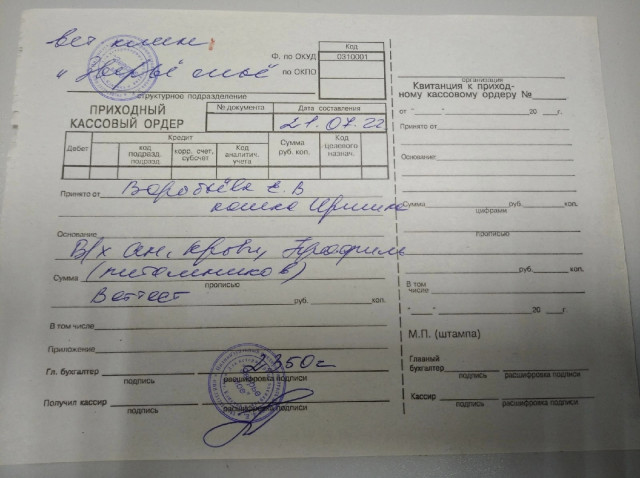 вет клин
"Зверьё моё
Код
Ф. по ОКУД 0310001
по ОКПО
структурное подразделение
ПРИХОДНЫЙ
КАССОВЫЙ ОРДЕР
№ документа Дата составления
21.07.22
Дебет Кредит Сумма руб. коп. Код целевого назнач.
код подразд. подразд. корр. счет, субсчет Код аналитич. учета
Принято от Воробьёва Е.В
кошка Иришка
Основание
Б/х ан. крови, Профиль
Сумма (питомников)
прописью
Веттест руб. коп.
В том числе
Приложение
2350=
Гл. бухгалтер
подпись расшифровка подписи
Получил кассир
подпись расшифровка подписи
организация
Квитанция к приход-
ному кассовому ордеру №
от " " 20 г.
Принято от
Основание
Сумма руб. коп.
цифрами
прописью
руб. коп.
В том
числе
" " 20 г.
М.П. (штампа)
Главный
бухгалтер
подпись расшифровка подписи
Кассир
подпись расшифровка подписи